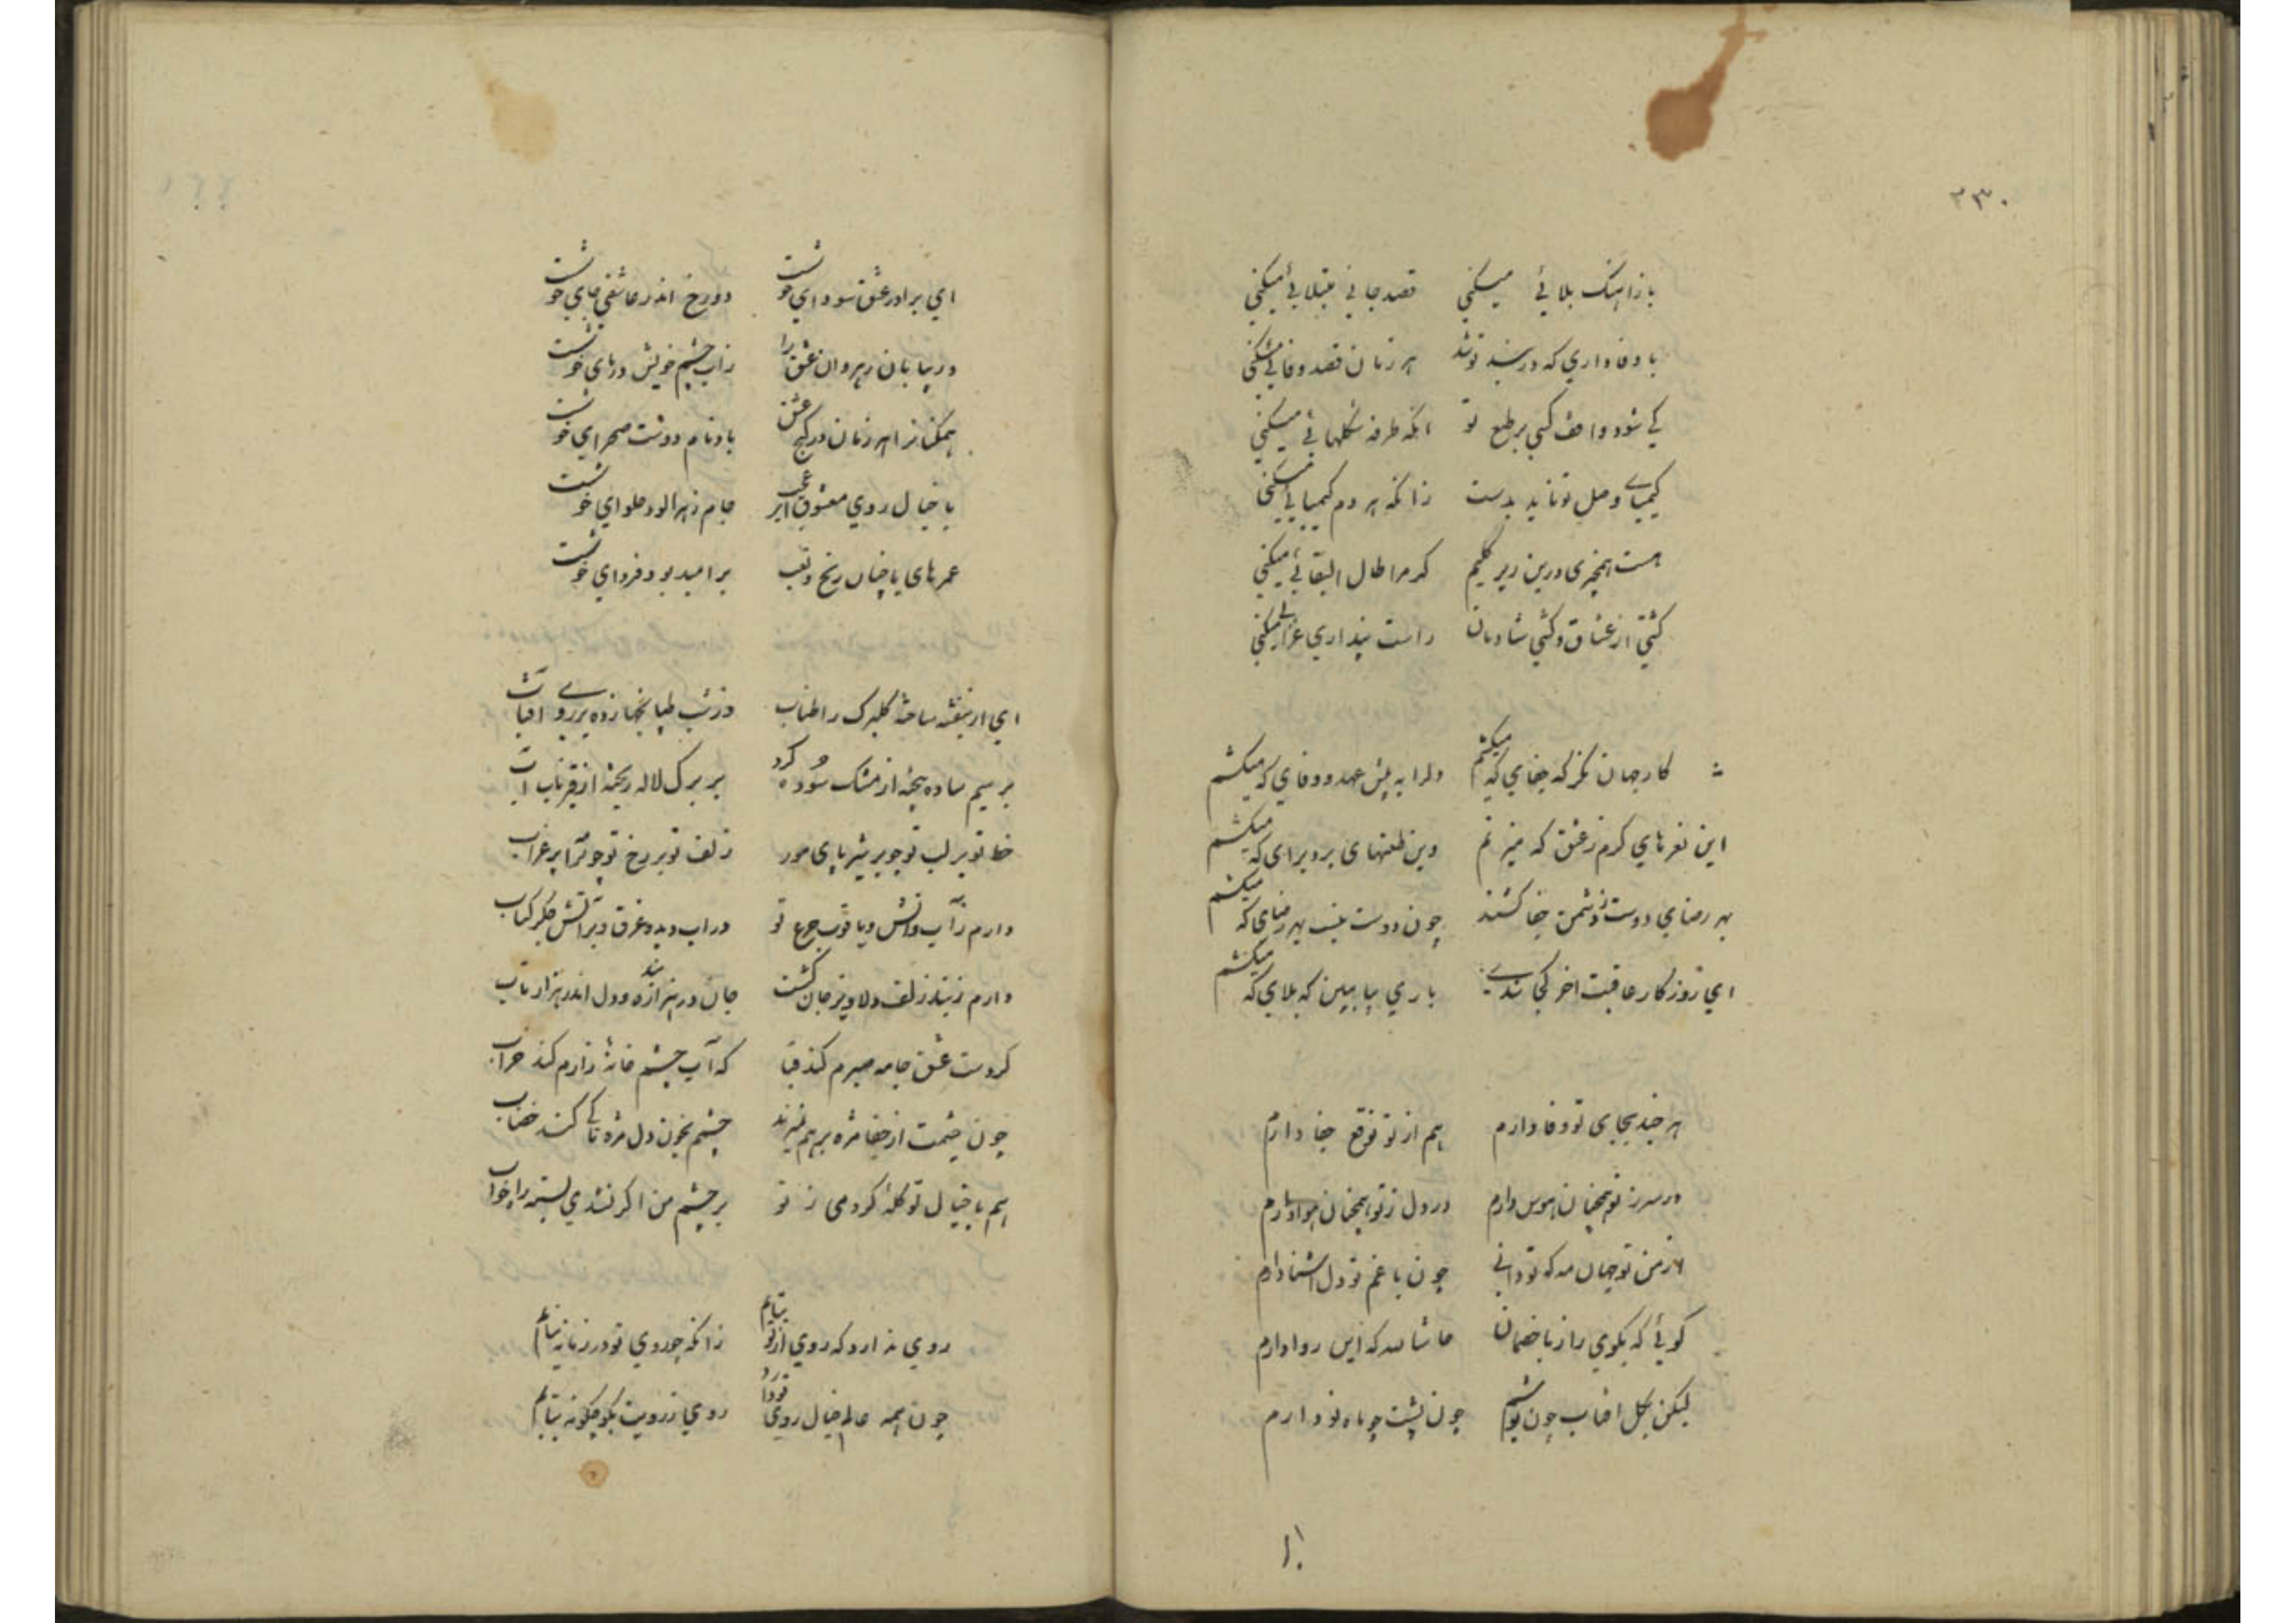 ۲۳۰
باز اهنک بلائی میکنی قصد جانی مبتلائی میکنی
با وفاداری که در بند تو شد هر زمان قصد وفائی میکنی
کی شود واقف کسی بر طبع تو انکه طرفه شکلهائی میکنی
کیمیای وصل تو ناید بدست زانکه هر دم کیمیائی میکنی
هست همچیزی درین زیر کلیم که مرا طال البقائی میکنی
کشتی از عشاق و کشی شادمان راست پنداری غزائی میکنی
کار جهان نکر که جفای که میکشم دل را به پیش عهد و وفای که میکشم
این نعرهای کرم ز عشق که میزنم وین طعنهای سرد برای که میکشم
بهر رضای دوست ز دشمن جفا کشند چون دوست نیست بهر رضای که میکشم
ای روزکار عاقبت اخر کجا شدی باری بیا ببین که بلای که میکشم
هر چند بجای تو وفا دارم هم از تو توقع جفا دارم
در سر ز تو همچنان هوس دارم در دل ز تو همچنان هوا دارم
از من تو جهان مد که تو دانی چون با غم تو دل اشنا دارم
کوئی که بکوی راز با خصمان حاشا لله که این روا دارم
لیکن بکل افتاب چون پوشم چون پشت چو ماه نو دارم
ای برادر عشق سودای خوشست دوزخ اندر عاشقی جای خوشست
در بیابان رهروان عشق را زاب چشم خویش دریای خوشست
همکنانرا هر زمان در کنج عشق با ونام دوست صحرای خوشست
با خیال روی معشوق ای عجب جام زهرالود حلوای خوشست
عمرهای با چنان رنج و تعب بر امید بود فردای خوشست
ای از بنفشه ساخته کلبرک را طناب وز شب طپانچها زده بر روی افتاب
بر سیم ساده بیخته از مشک سوده کرد بر برک لاله ریخته از قیر ناب آب
خط تو بر لب تو چو بر شیر پای مور زلف تو بر رخ تو چو پر غراب
دارم ز آب و اتش و یاقوت جزع تو در اب دیده غرق و بر آتش جکر کباب
دارم ز بند زلف دلاویز جان کشت جان در هزار بند و دل اندر هزار تاب
کر دست عشق جامه صبرم کند قبا که آب چشم خانه رازم کند خراب
چون چشمت از جفا مژه بر هم نمیزند چشم بخون دل مژه تا کی کند خضاب
هم با خیال تو کله کردمی ز تو بر چشم من اکر نشدی بسته راه خواب
روی ندارد که روی از تو بتابم زانکه چو روی تو در زمانه نیابم
چون همه عالم خیال روی تو دارد روی ز رویت بکو چکونه بتابم